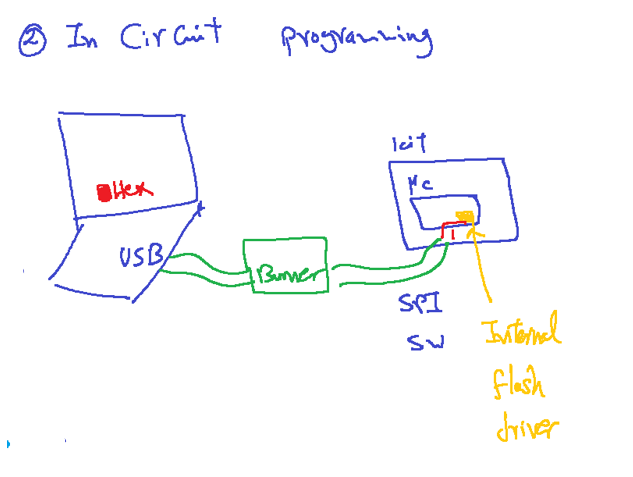 ② In Circuit programming
kit
Mc
Hex
USB
Burner
SPI
SW
Internal
flash
driver